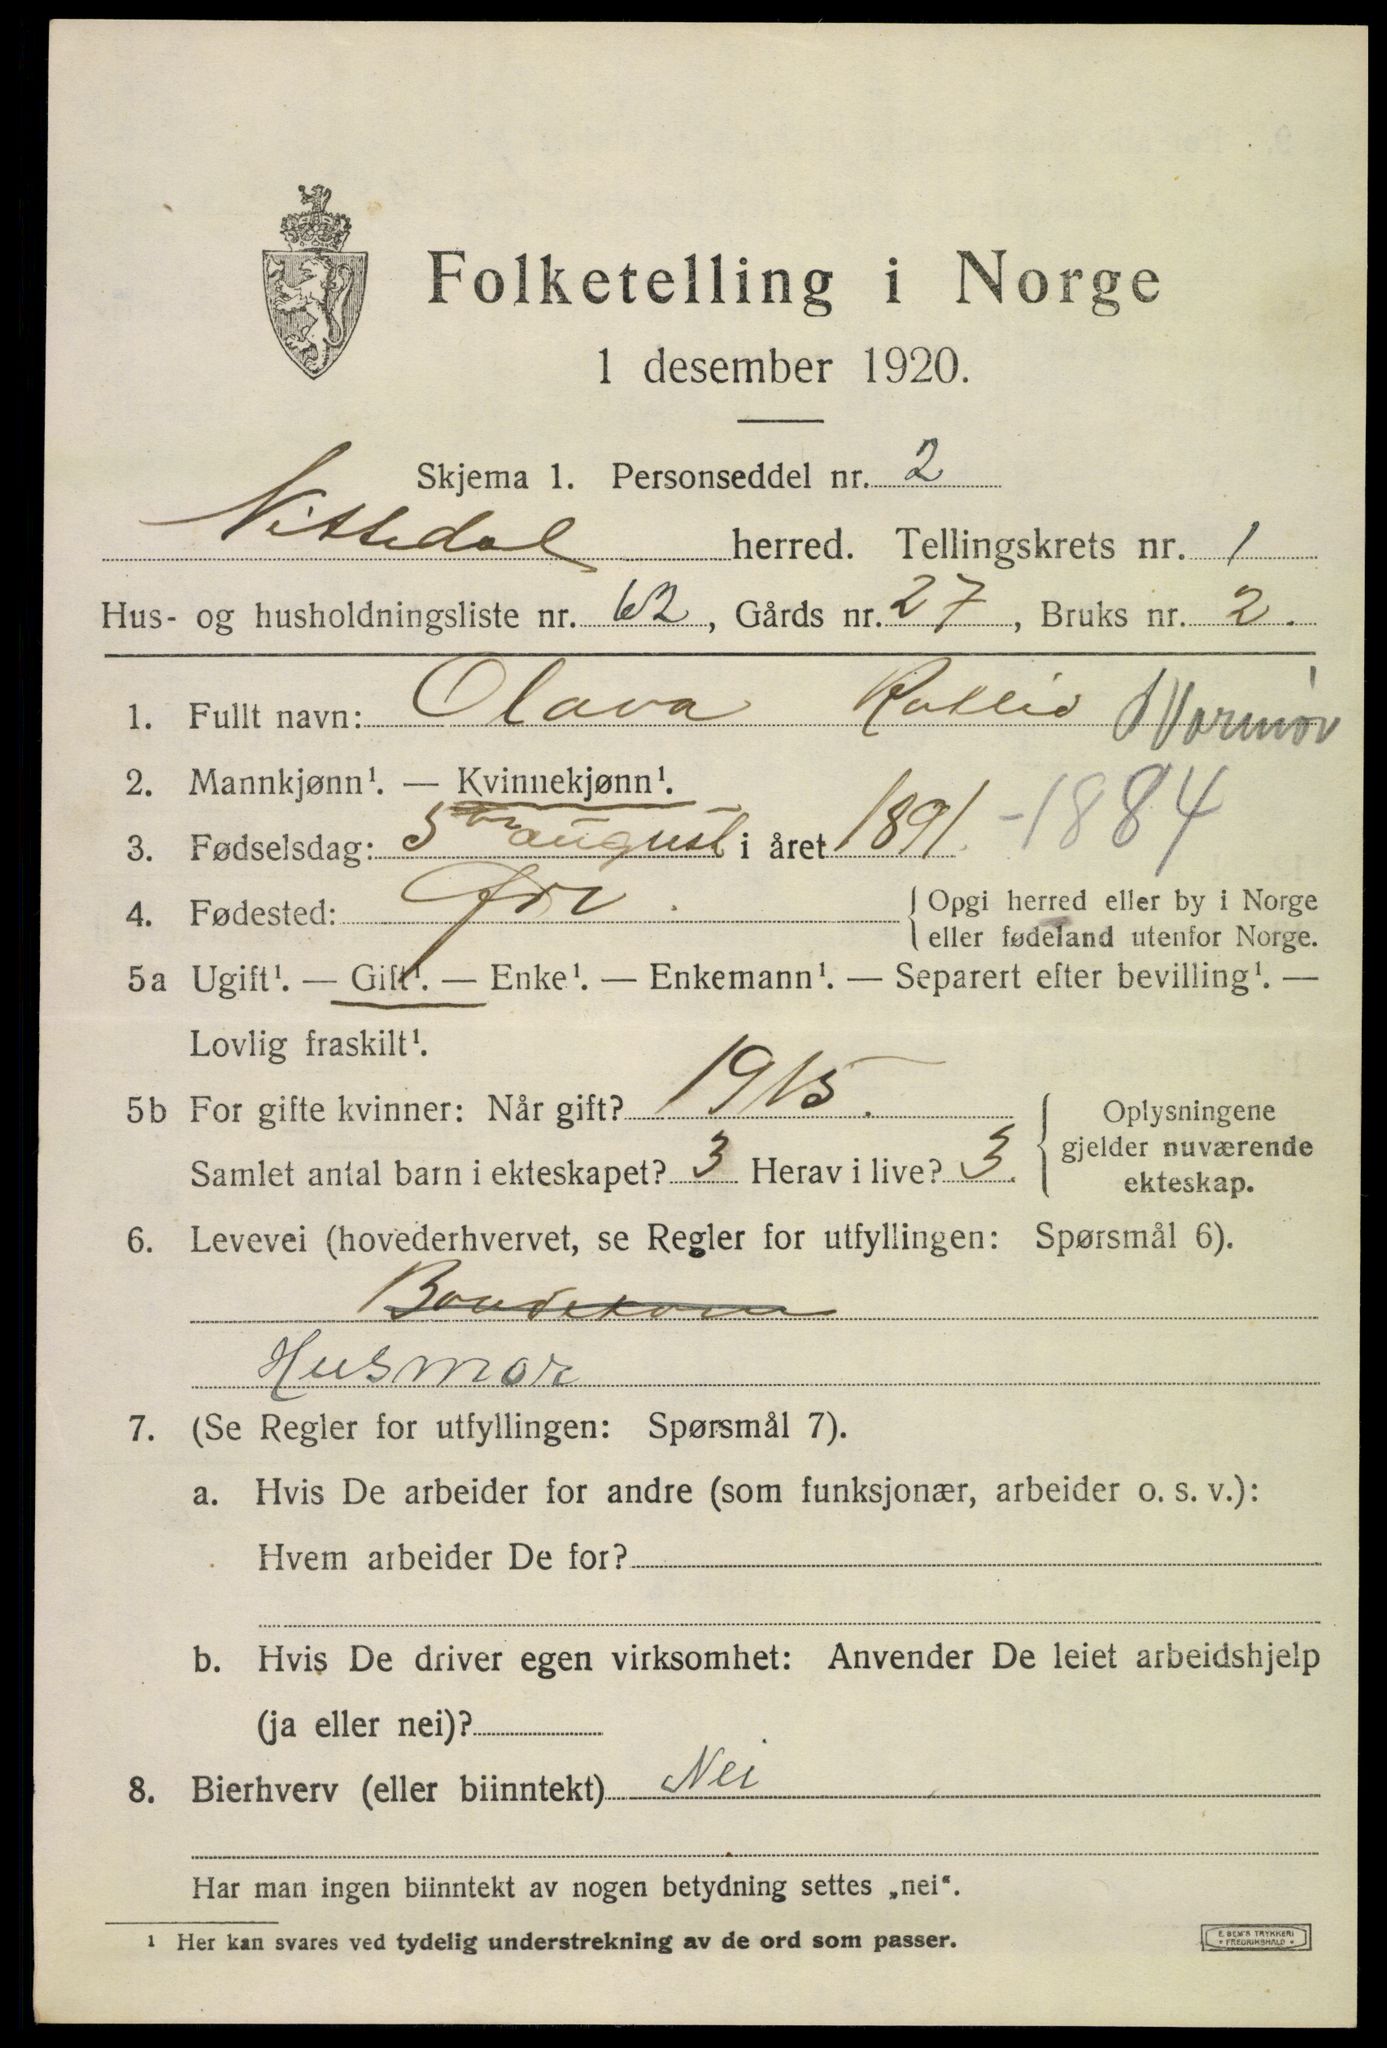 Folketelling i Norge
1 desember 1920.
Skjema 1. Personseddel nr. 2
Nittedal herred. Tellingskrets nr. 1
Hus- og husholdningsliste nr. 62, Gårds nr. 27, Bruks nr. 2.
1. Fullt navn: Olava
2. Mannkjønn¹. — Kvinnekjønn¹.
3. Fødselsdag: 5 august i året 1891. - 1884
4. Fødested: { Opgi herred eller by i Norge
eller fødeland utenfor Norge.
5a Ugift¹. — Gift¹. — Enke¹. — Enkemann¹. — Separert efter bevilling¹. —
Lovlig fraskilt¹.
5b For gifte kvinner: Når gift? 1915. { Oplysningene
gjelder nuværende
Samlet antal barn i ekteskapet? 3 Herav i live? 3. ekteskap.
6. Levevei (hovederhvervet, se Regler for utfyllingen: Spørsmål 6).
Husmor
7. (Se Regler for utfyllingen: Spørsmål 7).
a. Hvis De arbeider for andre (som funksjonær, arbeider o. s. v.):
Hvem arbeider De for?
b. Hvis De driver egen virksomhet: Anvender De leiet arbeidshjelp
(ja eller nei)?
8. Bierhverv (eller biinntekt) Nei
Har man ingen biinntekt av nogen betydning settes „nei“.
¹ Her kan svares ved tydelig understrekning av de ord som passer.
E. SEM'S TRYKKERI
* FREDRIKSHALD *